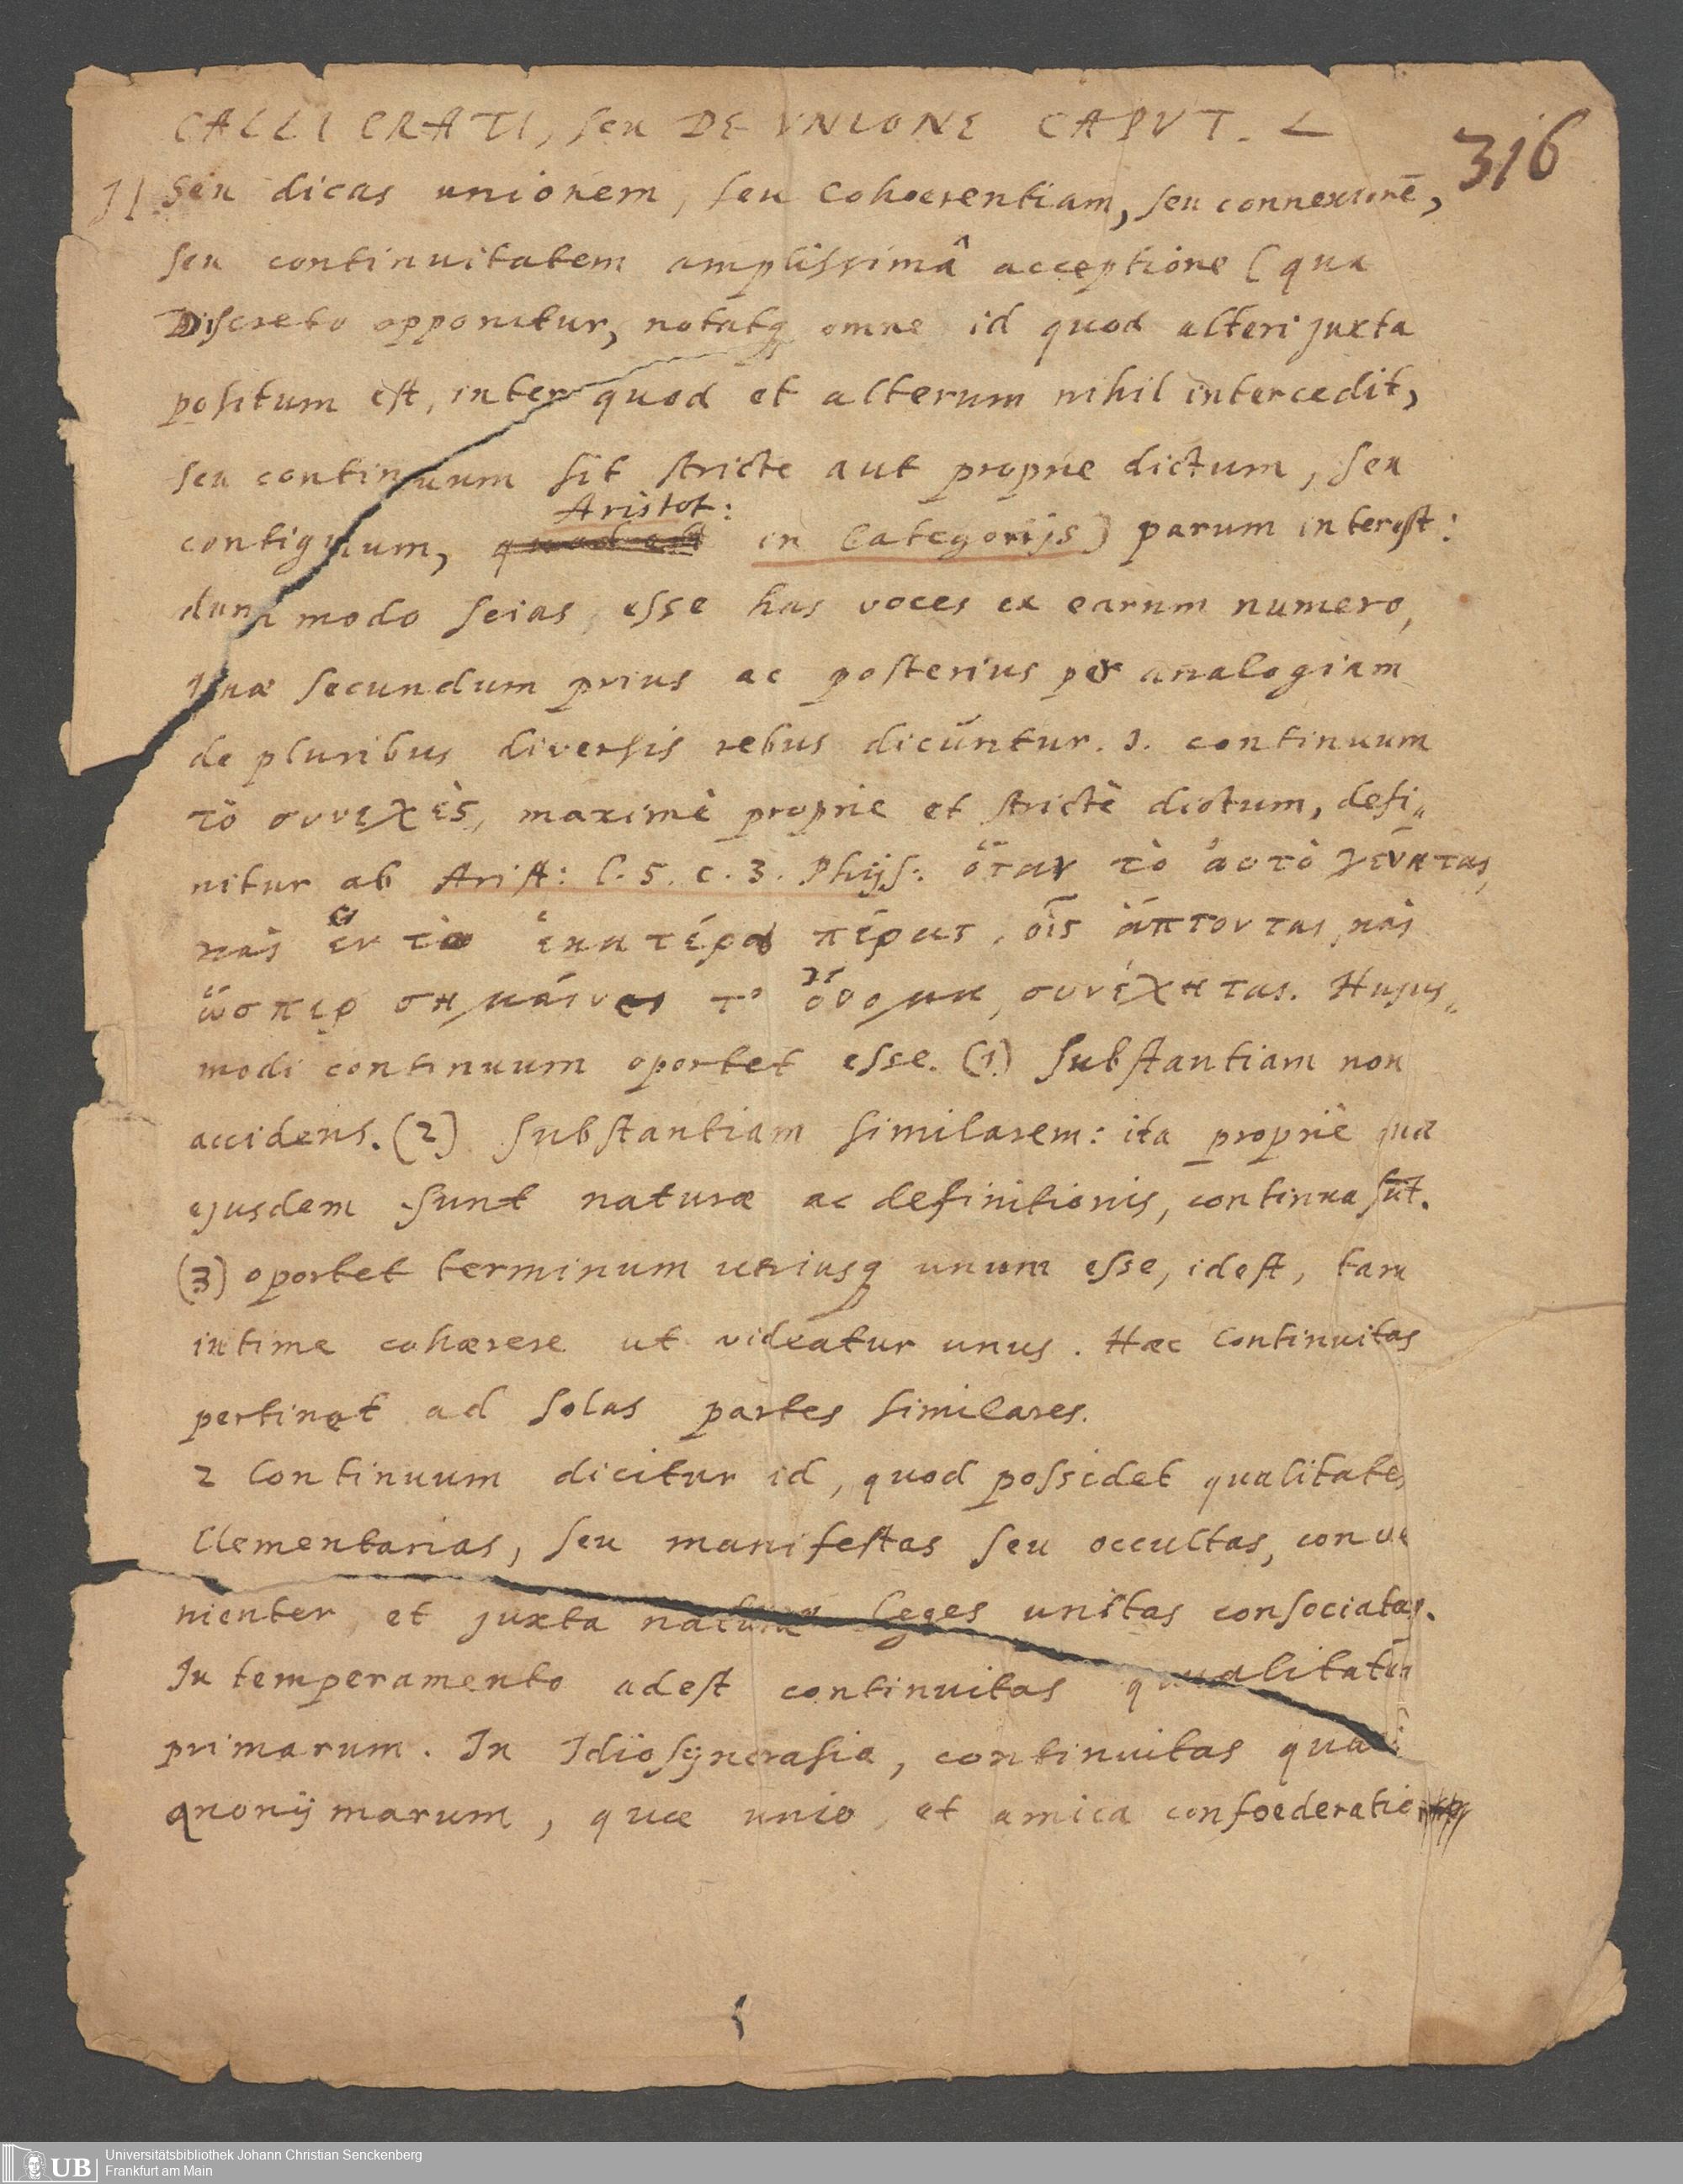 CALLICRATI, seu DE VNIONE CAPVT. L
316
1/ Seu dicas unionem, seu cohoerentiam, seu connexionē,
seu continuitatem amplissimâ acceptione (qua
Discreto opponitur, notatq omne id quod alteri juxta
positum est, inter quod et alterum nihil intercedit,
seu continuum sit stricte aut proprie dictum, seu
Aristot:
contiguum, quod est in Categorijs) parum interest:
dum modo scias, esse has voces ex earum numero,
quæ secundum prius ac posterius per analogiam
de pluribus diversis rebus dicuntur. 1. continuum
τὸ συνεχὲς, maximè proprie et strictè dictum, defi„
nitur ab Arist: l. 5. c. 3. Phys: ὅταν τὸ ἀυτὸ γένηται,
καὶ ἓν τὸ ἑκατέρα πέρας, οἷς ἅπτονται, καὶ
ὥσπερ σημαίνει τ' ὄνομα, συνέχηται. Hujus„
modi continuum oportet esse. (1) Substantiam non
accidens. (2) Substantiam similarem: ita propriè quæ
ejusdem sunt naturæ ac definitionis, continua sūt.
(3) oportet terminum utriusq unum esse, idest, tam
intime cohærere ut videatur unus. Hæc continuitas
pertinet ad solas partes similares.
2 Continuum dicitur id, quod possidet qualitates
Elementarias, seu manifestas seu occultas, conve
nienter et juxta naturæ leges unitas consociatas.
In temperamento adest continuitas qualitatū
primarum. In Idiosyncrasia, continuitas quali
anonymarum, quæ unio, et amica confoederatio
Universitätsbibliothek Johann Christian Senckenberg
UB Frankfurt am Main